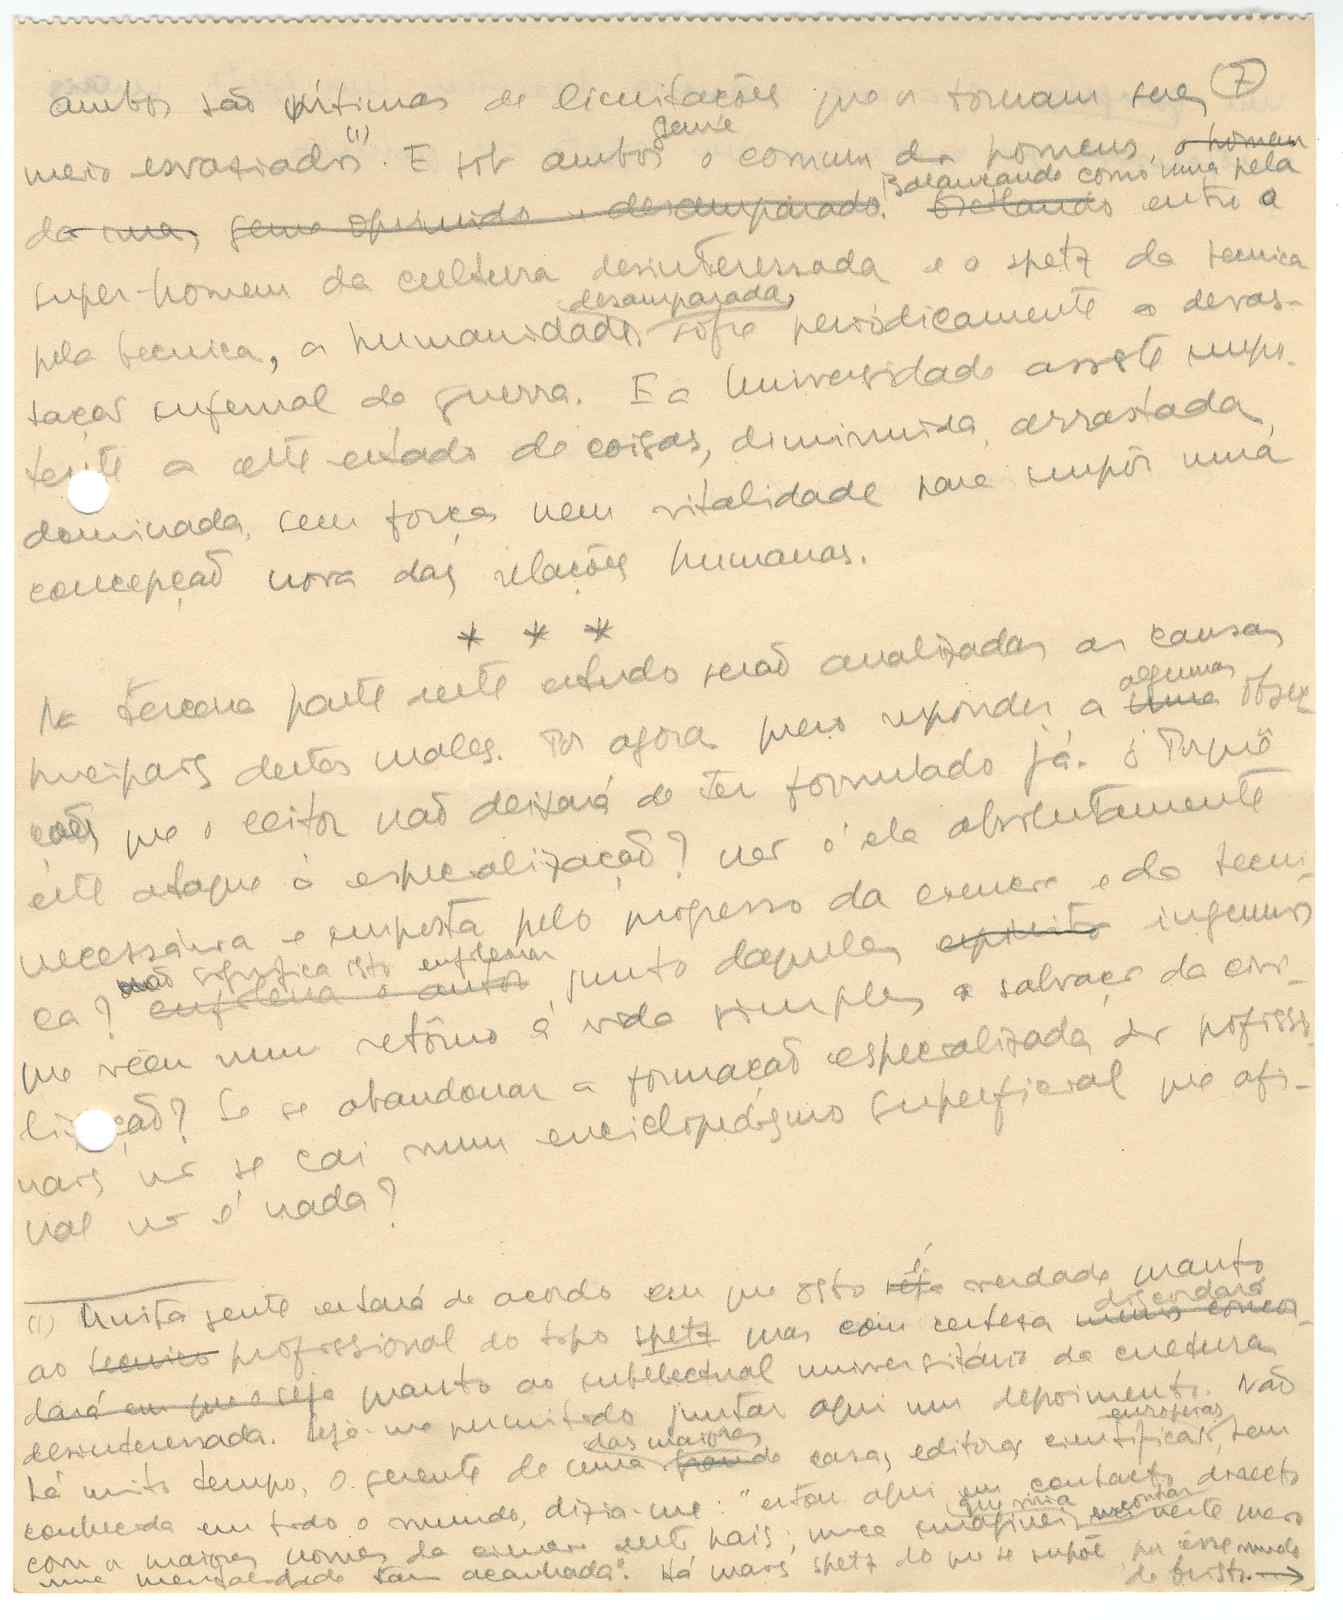 ambos são vítimas de limitações que os tornam seres (7)
meio esvaziados (1). E sob ambos geme o comum dos homens, o homem
da rua, geme oprimido e desamparado. Balanceando como uma pela Oscilando entre o
super-homem da cultura desinteressada e o spetz da tecnica
pela tecnica, a humanidade, desamparada, sofre periódicamente a devas-
tação infernal da guerra. E a Universidade assiste impo-
tente a este estado de coisas, diminuida, arrastada,
dominada, sem força nem vitalidade para impôr uma
concepção nova das relações humanas.
* * *
Na terceira parte deste estudo serão analizadas as causas
principais destes males. Por agora quero responder a uma algumas objec
ções que o leitor não deixará de ter formulado já. ¿ Porquê
êste ataque à especialização? não é ela absolutamente
necessária e imposta pelo progresso da ciencia e da tecni
ca? enfileira o autor não significa isto enfileirar junto daqueles espiritos ingenuos
que vêem num retôrno à vida simples a salvação da civi-
lização? Se se abandonar a formação especializada dos profissio
nais, não se cai num enciclopedismo superficial que afi-
nal não é nada?
(1) Muita gente estará de acordo em que isto seja é verdade quanto
ao tecnico profissional do tipo spetz mas com certeza menos concor- discordará
dará em que o seja quanto ao intelectual universitário da cultura
desinteressada. Seja-me permitido juntar aqui um depoimento. Não
há muito tempo, o gerente de uma grande das maiores casas editoras cientificas europeias, bem
conhecida em todo o mundo, dizia-me: "estou aqui em contacto directo
com os maiores nomes da ciencia deste país; nunca imaginei que viria encontrar neste meio
uma mentalidade tam acanhada". Há mais spetz do que se supõe, por êsse mundo
de Cristo. →